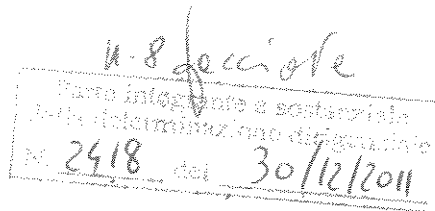 n. 8 facciate
Parte integrante e sostanziale
della determinazione dirigenziale
N. 2418 del 30/12/2011